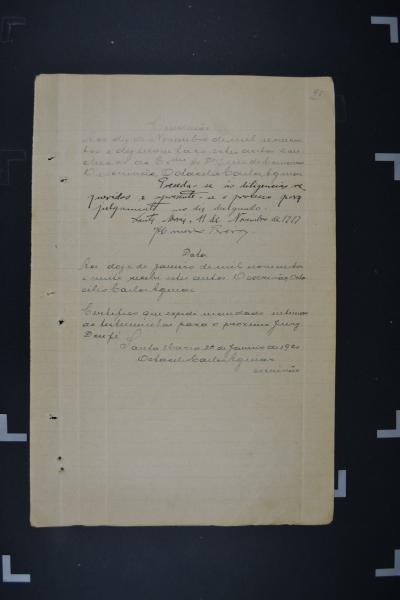 Conclusão
Aos dez de Novembro de mil novecen
tos e dezenove faço estes autos con
clusos ao Exmo Sr. Dr Juiz de Comarca
O escrivão, Octacilio Carlos Aguiar
Proceda-se às diligencias re
queridas e apresente-se o processo para
julgamento no dia designado
Santa Maria, 11 de Novembro de 1919
Data
Aos doze de Janeiro de mil novecentos
e vinte recebi estes autos. O escrivão, Octa
cilio Carlos Aguiar
Certifico que expedi mandado intiman
do as testemunhas para o proximo Jury
Dou fé
Santa Maria 20 de Janeiro de 1920
Octacilio Carlos Aguiar
escrivão